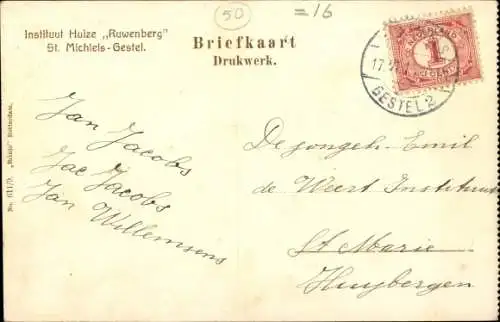 50
=16
Instituut Huize „Ruwenberg"
St. Michiels-Gestel.
Briefkaart
Drukwerk.
NEDERLAND
1
CENT
17.
GESTEL 2
Jan Jacobs
Jac Jacobs
Jan Willemsens
De jongeh. Emil
de Weert Instituut
St Marie
Huybergen
Rotterdam.